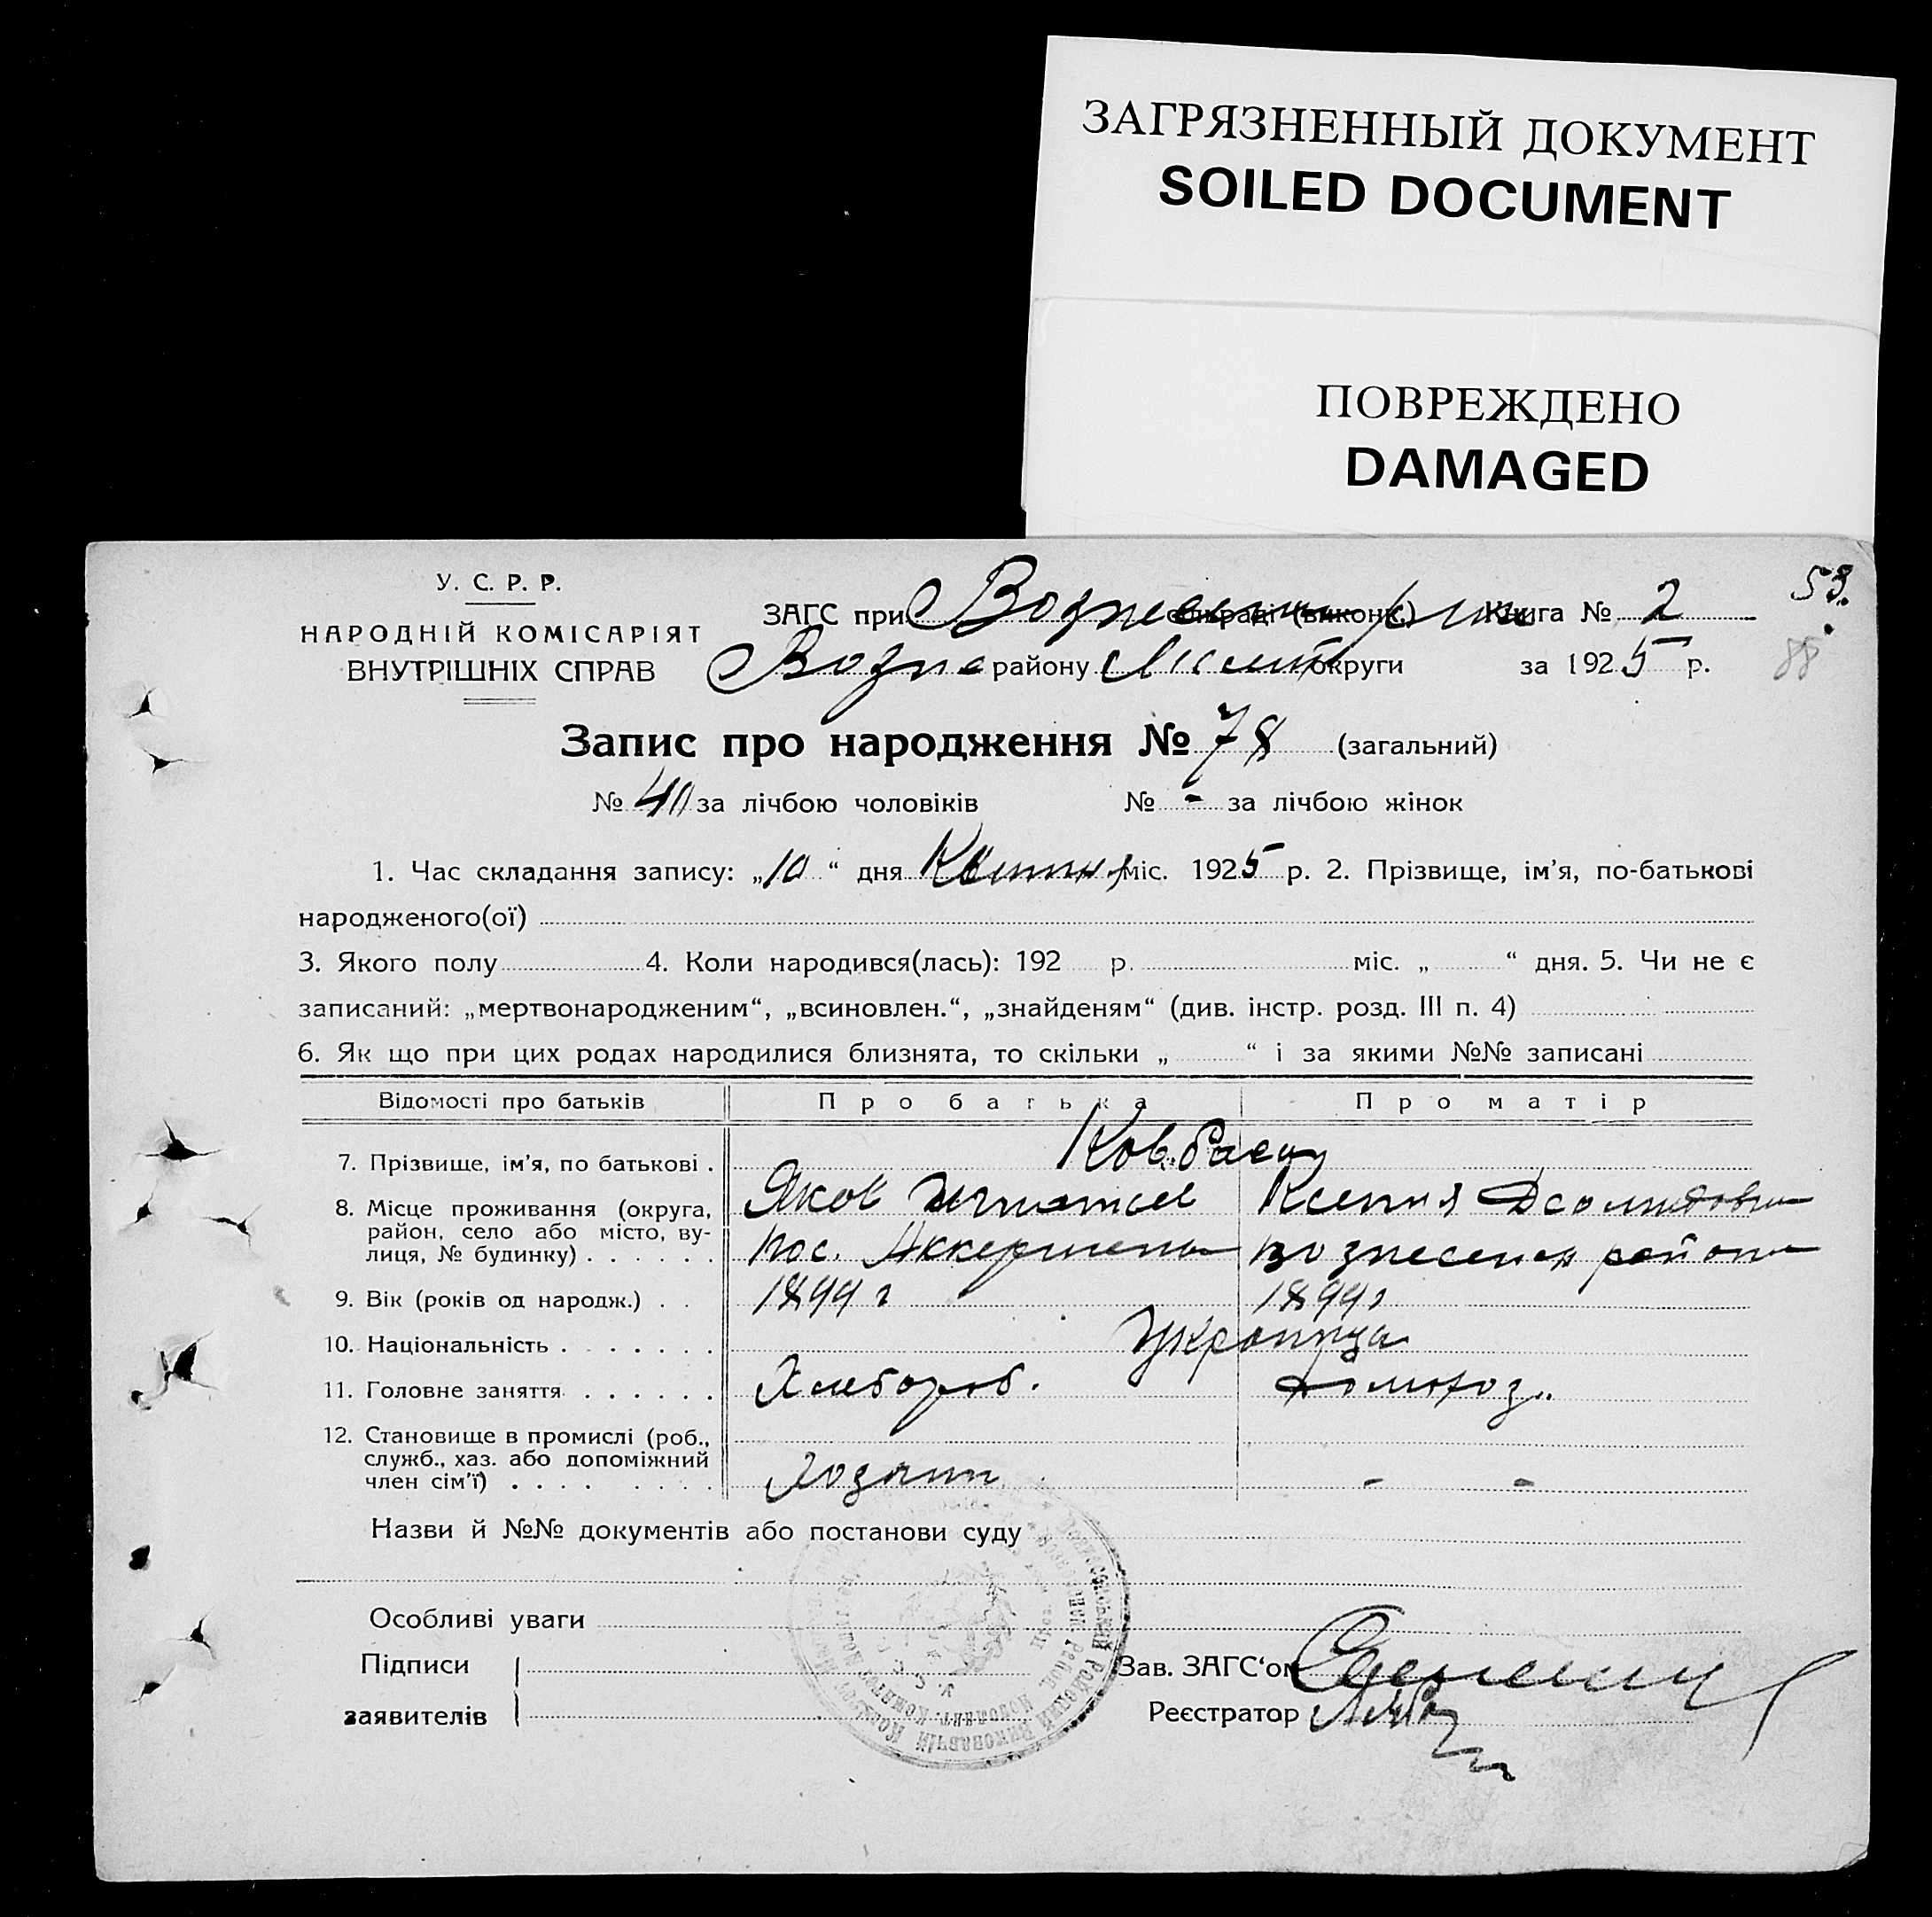 ЗАГРЯЗНЕННЫЙ ДОКУМЕНТ
SOILED DOCUMENT
ПОВРЕЖДЕНО
DAMAGED
53.
88
У. С. Р. Р.
НАРОДНІЙ КОМІСАРІЯТ
ВНУТРІШНІХ СПРАВ
ЗАГС при сільраді (виконк.) Книга № 2
Возне району Мелит округи за 1925 р.
Запис про народження № 78 (загальний)
№ 40 за лічбою чоловіків № - за лічбою жінок
1. Час складання запису: „10“ дня Квитня міс. 1925 р. 2. Прізвище, ім'я, по-батькові
народженого(ої)
3. Якого полу 4. Коли народився(лась): 192 р. міс. „ “ дня. 5. Чи не є
записаний: „мертвонародженим“, „всиновлен.“, „знайденям“ (див. інстр. розд. III п. 4)
6. Як що при цих родах народилися близнята, то скільки „ “ і за якими №№ записані
Відомості про батьків Про батька Про матір
7. Прізвище, ім'я, по батькові . Ковбаса
8. Місце проживання (округа, Яков Игнатьев Ксения
район, село або місто, ву-
лиця, № будинку) . . . . . . пос. Аккермень вознесенск района
9. Вік (років од народж.) . . 1899 г 1899 г
10. Національність . . . . . . . Украинца
11. Головне заняття . . . . . . Хлебороб. домхоз..
12. Становище в промислі (роб.,
служб., хаз. або допоміжний
член сім'ї) . . . . . . . . Хозяин - -
Назви й №№ документів або постанови суду
Особливі уваги
Підписи
заявителів
Зав. ЗАГС‘ом
Реєстратор